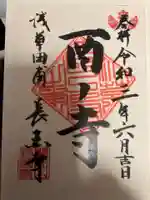 奉拝 令和二年六月吉日
酉ノ寺
浅草田甫 長国寺